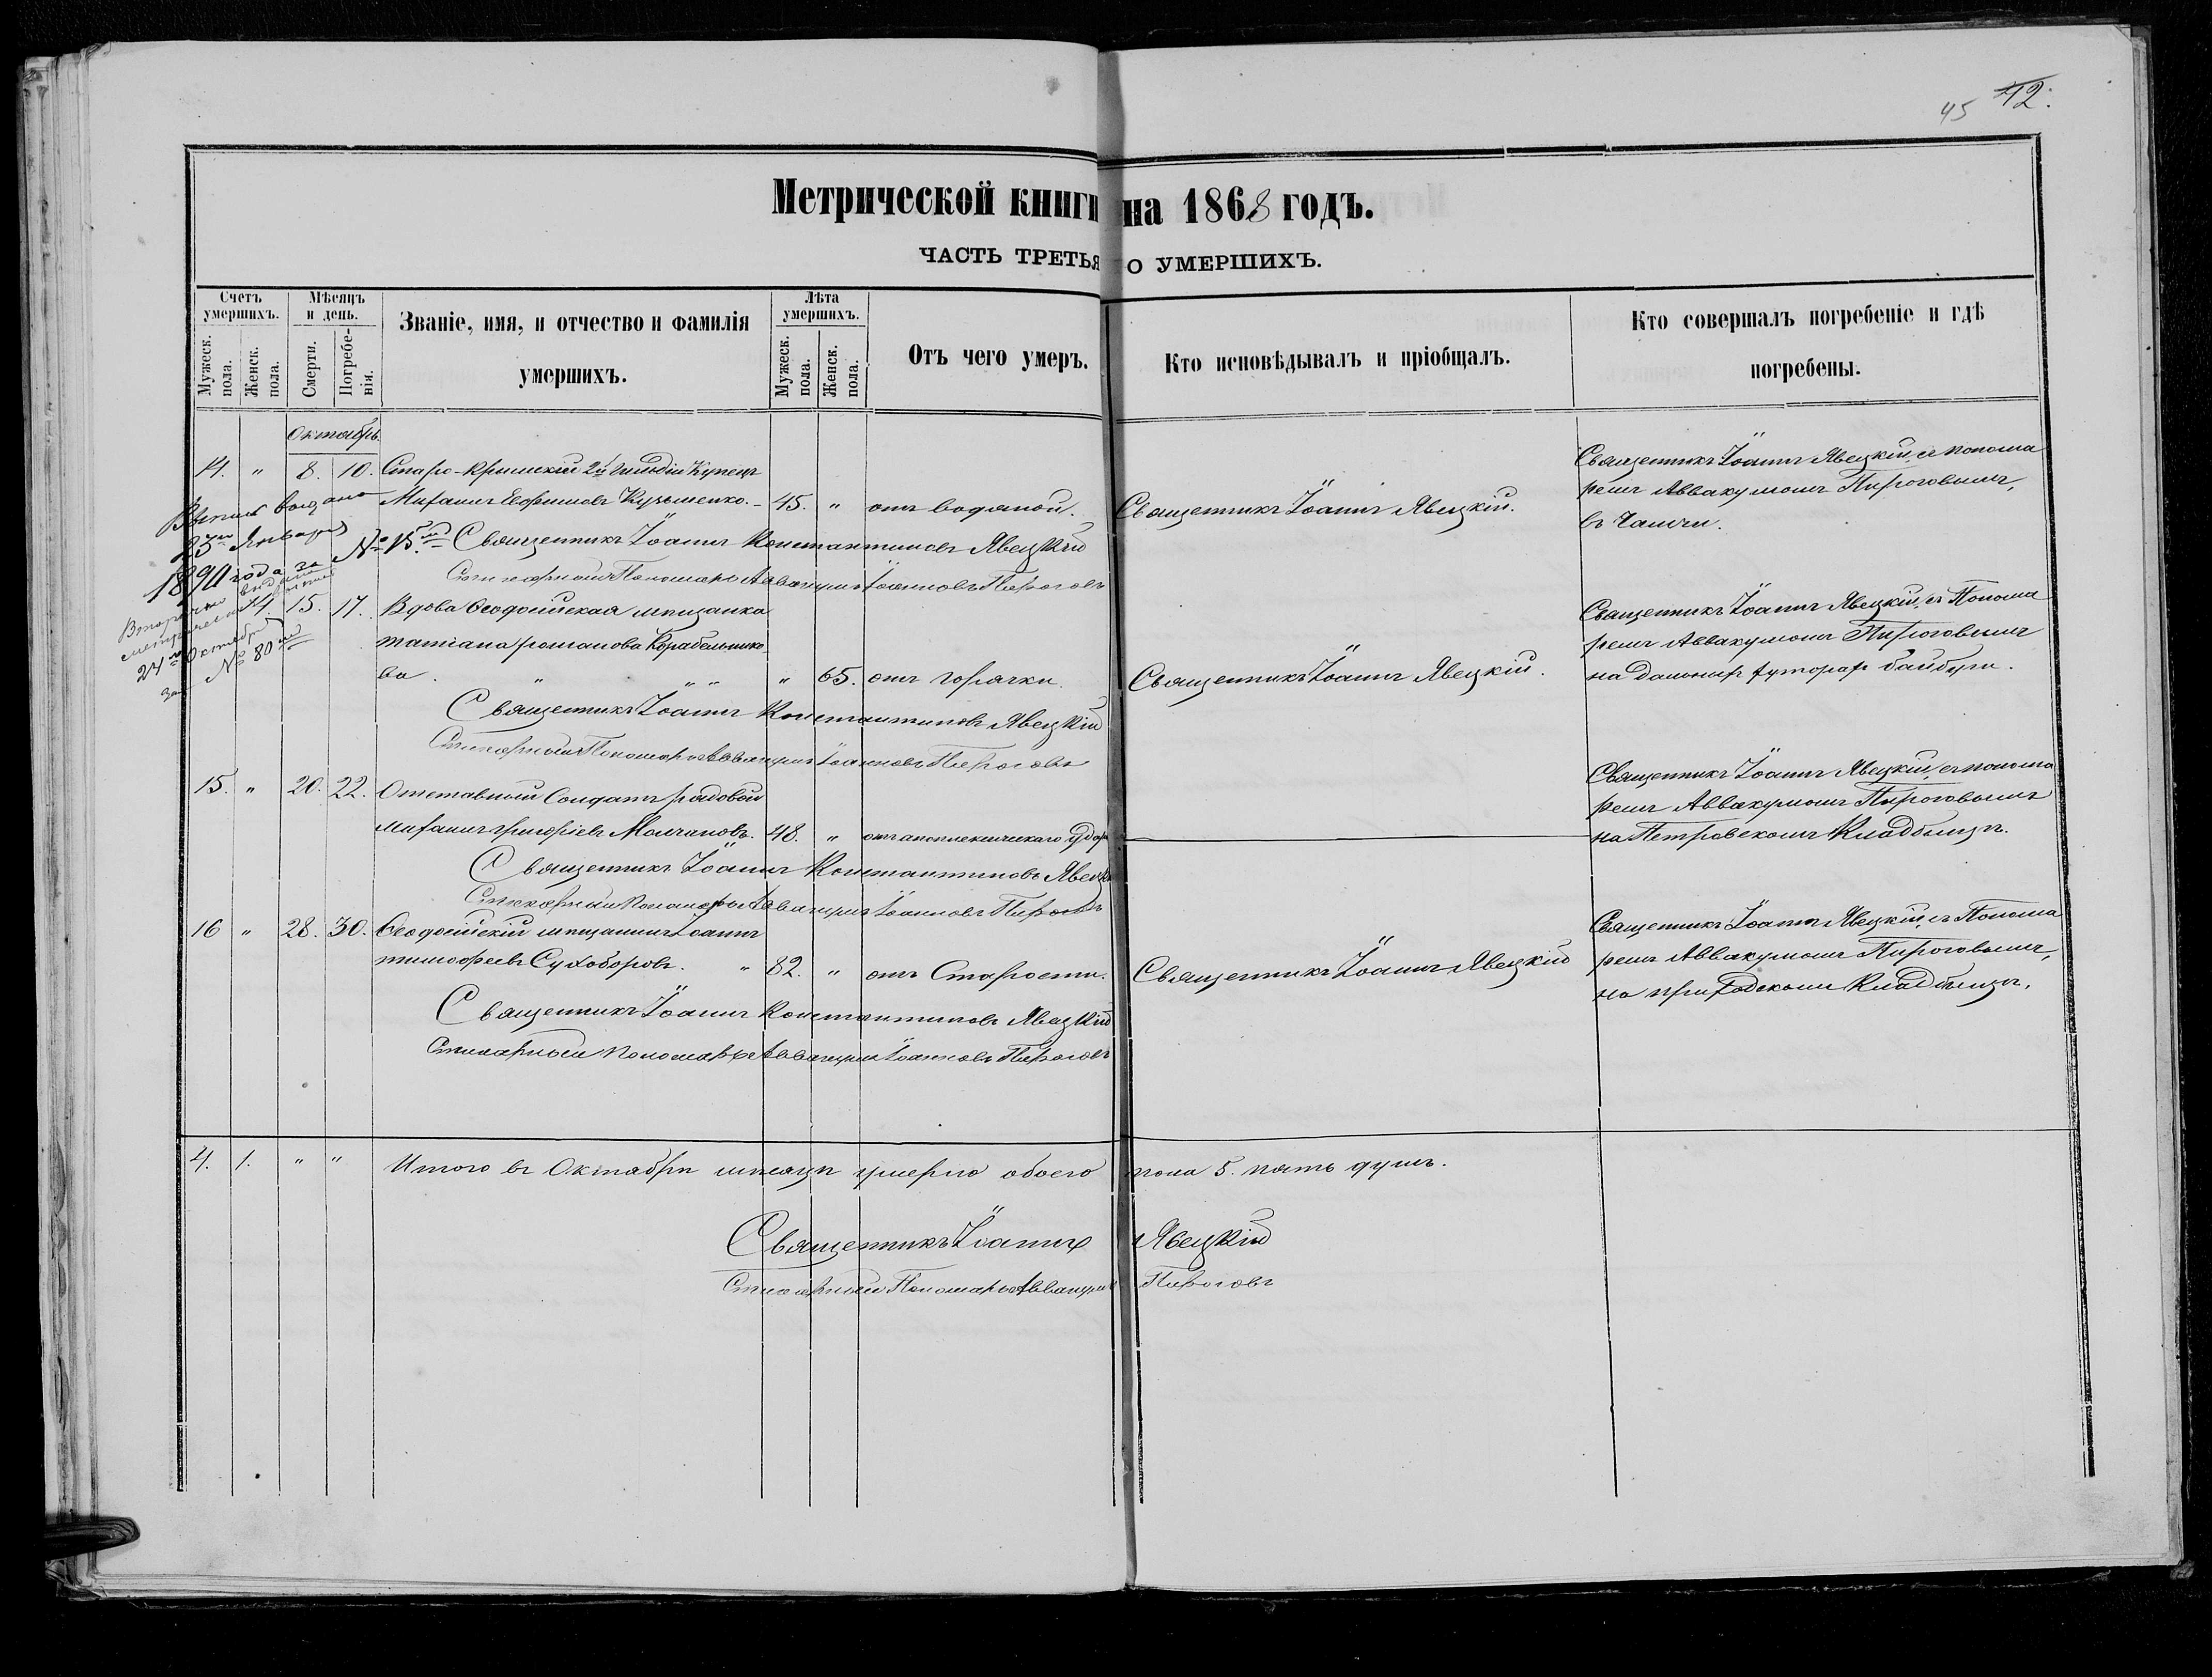 45 42.
Метрической книги на 1868 годъ.
ЧАСТЬ ТРЕТЬЯ О УМЕРШИХЪ.
Счетъ умершихъ.
Мужеск. пола.
Женск. пола.
Мѣсяцъ и день.
Смерти.
Погребенія.
Званіе, имя, и отчество и фамилія умершихъ.
Лѣта умершихъ.
Мужеск. пола.
Женск. пола.
Отъ чего умеръ.
Кто исповѣдывалъ и пріобщалъ.
Кто совершалъ погребеніе и гдѣ погребены.
Октябрь
14. " 8. 10. Старо-Крымскій 2й Гильдіи Купецъ
Михаилъ Евфимовъ Кузьменко. 45. " отъ водяной. Священникъ Іоаннъ Явецкій.
Священникъ Іоаннъ Явецкій, съ понома
ремъ Аввакумомъ Пироговымъ,
въ
23го Января
1890 года за № 15.мъ
Священникъ Іоаннъ Константиновъ Явецкій
Стихарный Пономарь Аввакумъ Іоанновъ Пироговъ
24го Октября
за № 80мъ
14. 15. 17. Вдова Ѳеодосійская мѣщанка
Татіана Романова Корабельнико
ва. " " " " 65. отъ горячки. Священникъ Іоаннъ Явецкій.
Священникъ Іоаннъ Явецкій, съ Понома
ремъ Аввакумомъ Пироговымъ
на дальних хуторах байбуги.
Священникъ Іоаннъ Константиновъ Явецкій
Стихарный Пономарь Аввакумъ Іоанновъ Пироговъ
15. " 20. 22. Отставный Солдатъ рядовой
Михаилъ Григоріевъ Молчановъ. 48. " отъ апоплексическаго удара
Священникъ Іоаннъ Явецкій, съ понома
ремъ Аввакумомъ Пироговымъ
на Петровскомъ Кладбищѣ.
Священникъ Іоаннъ Константиновъ Явецкій
Стихарный Пономарь Аввакумъ Іоанновъ Пироговъ
16 " 28. 30. Ѳеодосійскій мѣщанинъ Іоаннъ
Тимофеевъ Сухоборовъ. " 82. " отъ Старости. Священникъ Іоаннъ Явецкій
Священникъ Іоаннъ Явецкій, съ Понома
ремъ Аввакумомъ Пироговымъ,
на приходскомъ Кладбищѣ.
Священникъ Іоаннъ Константиновъ Явецкій
Стихарный пономарь Аввакумъ Іоанновъ Пироговъ
4. 1. " " Итого въ Октябрѣ мѣсяцѣ умерло обоего пола 5. пять душъ.
Священникъ Іоаннъ Явецкій
Стихарный Пономарь Аввакумъ Пироговъ